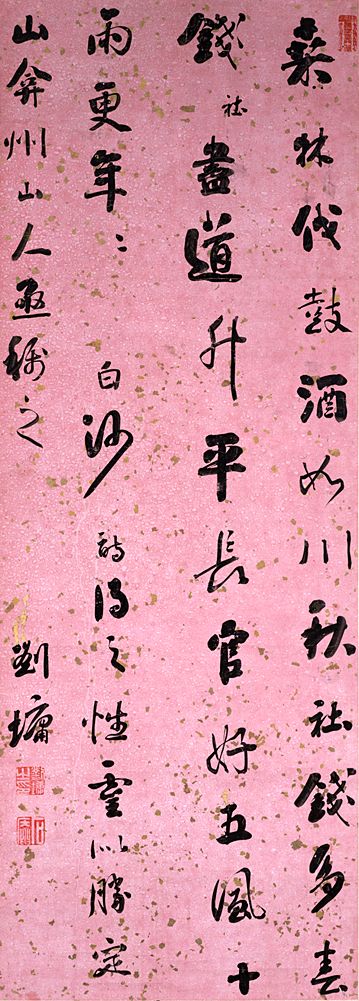 桑林伐鼓酒如川秋社錢多春
錢社盡道升平長官好五風十
雨更年〻白沙詩得之性靈以勝定
山弇州山人亟稱之劉墉